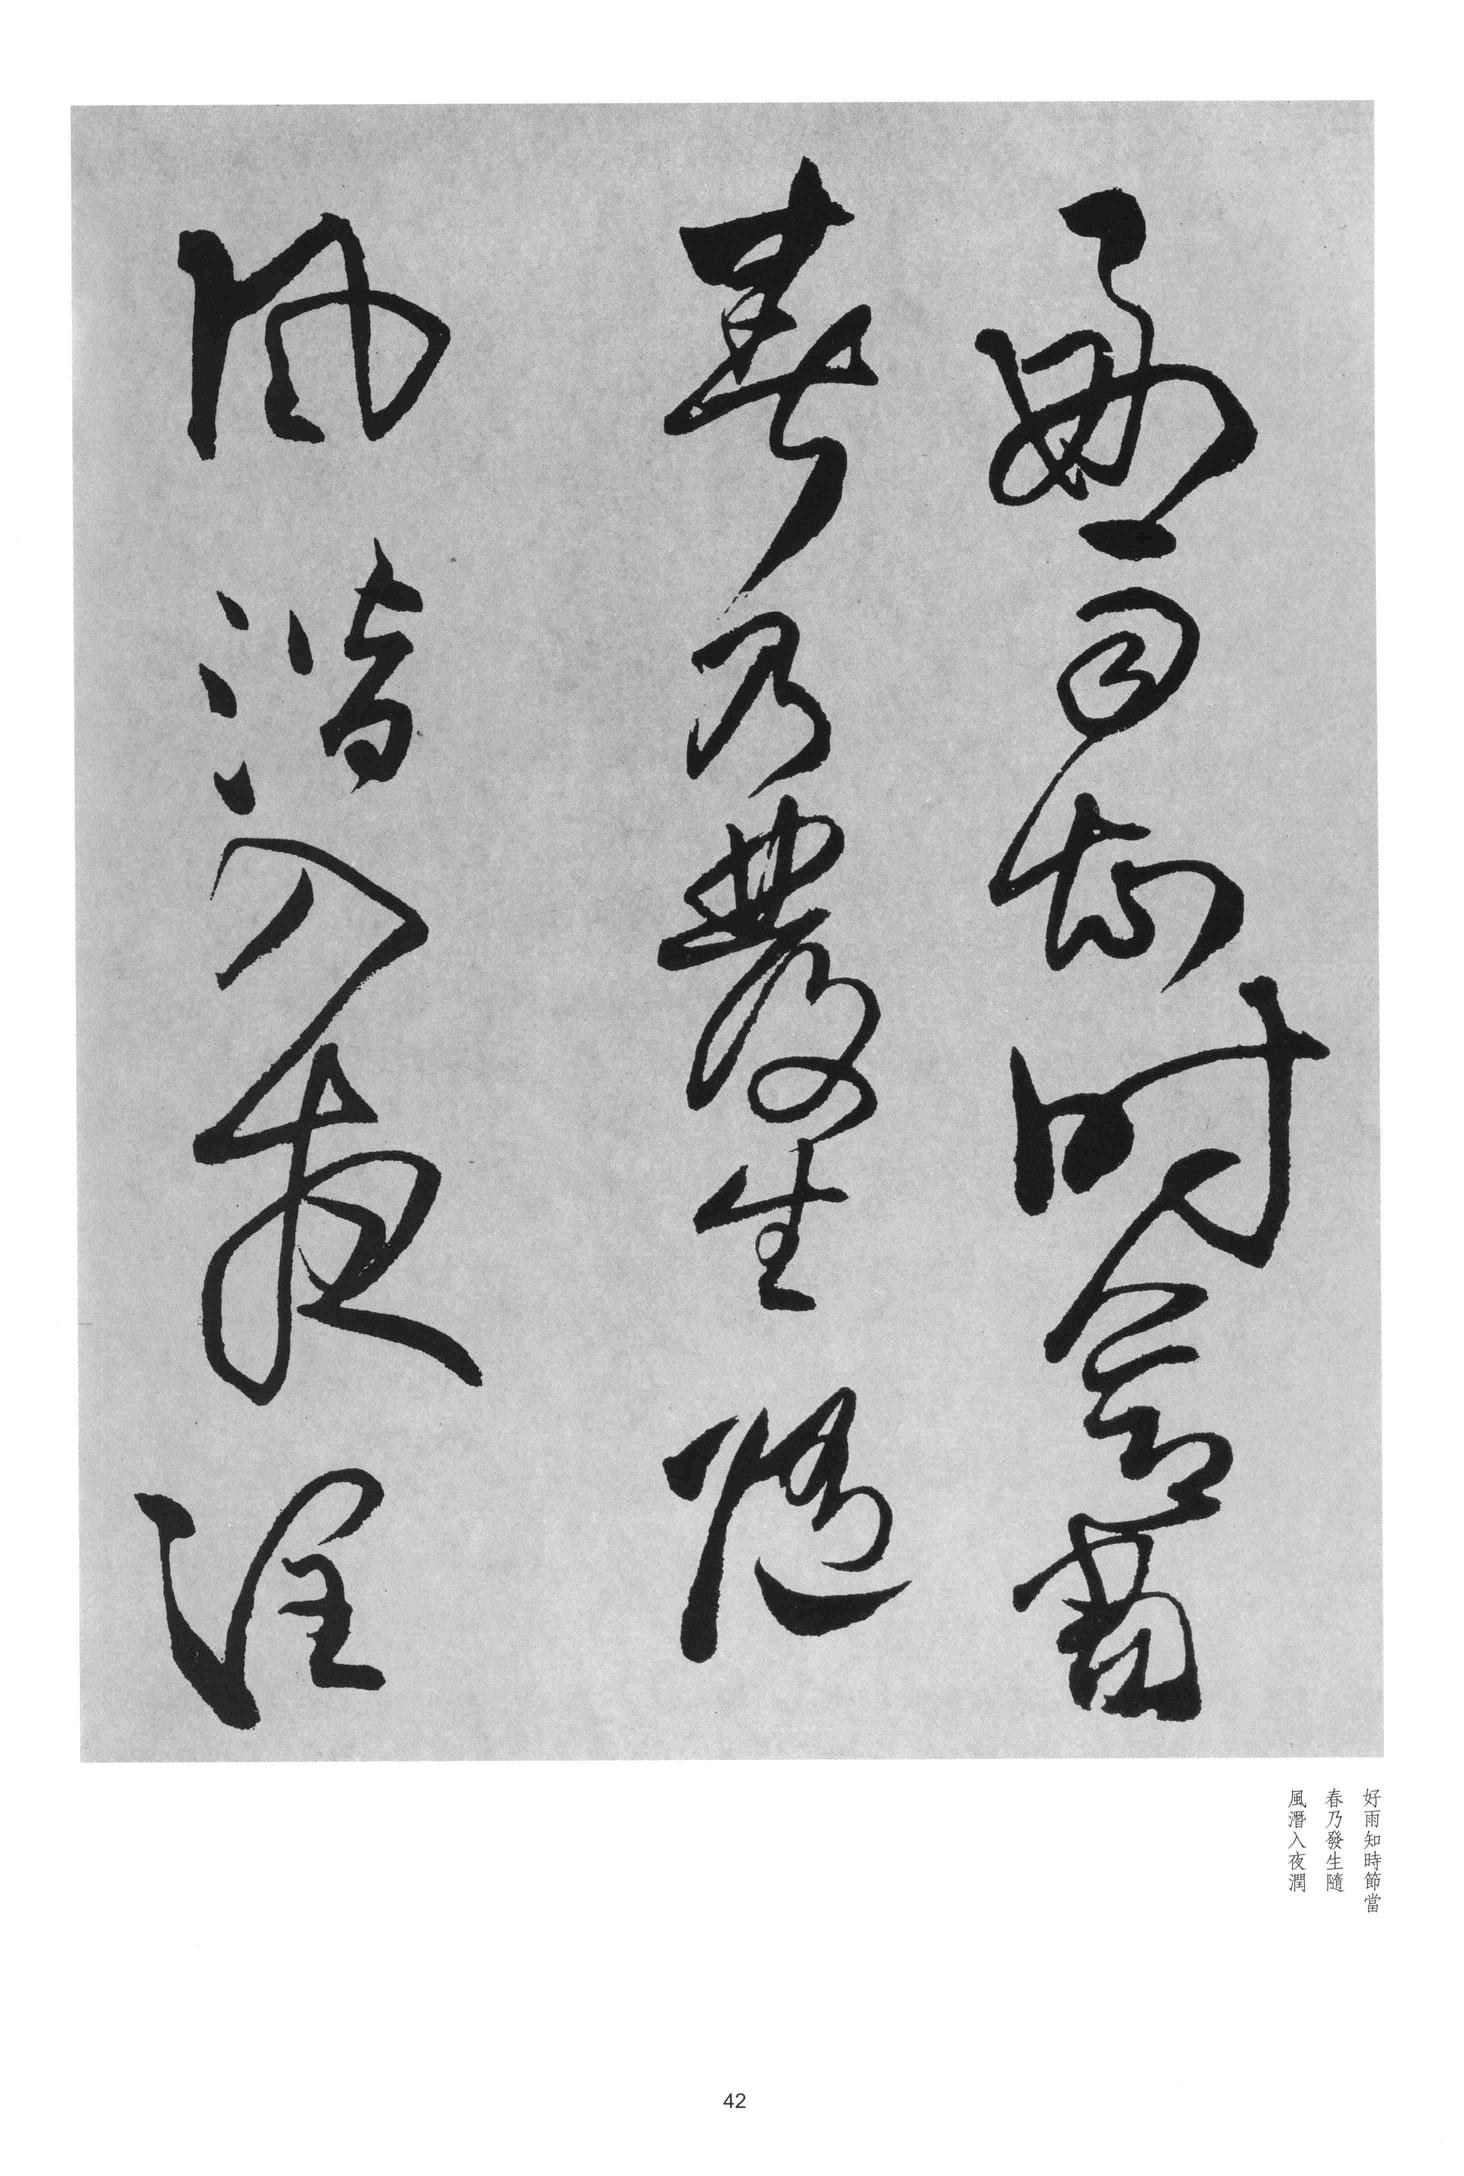 好雨知時節當
春乃發生隨
風潛入夜潤
好雨知時節當
春乃發生隨
風潛入夜潤
42